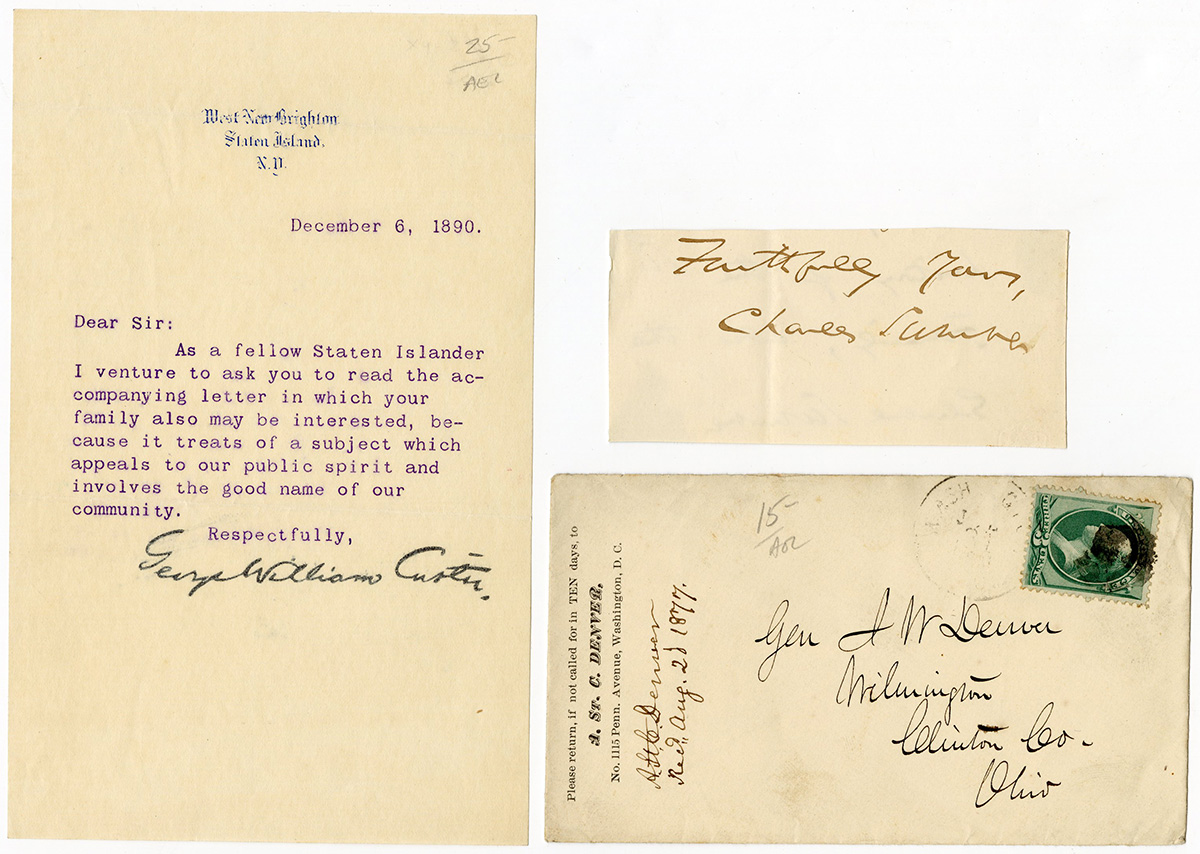 25-
AEL
West New Brighton
Staten Island,
N.Y.
December 6, 1890.
Dear Sir:
As a fellow Staten Islander
I venture to ask you to read the ac-
companying letter in which your
family also may be interested, be-
cause it treats of a subject which
appeals to our public spirit and
involves the good name of our
community.
Respectfully,
George William Curtis.
Faithfully Yours,
Charles Sumner
Please return, if not called for in TEN days, to
A. ST. C. DENVER,
No. 1115 Penn. Avenue, Washington, D. C.
A. St. C. Denver
Recd Aug. 2d 1877.
15-
Gen J W Denver
Wilmington
Clinton Co.
Ohio